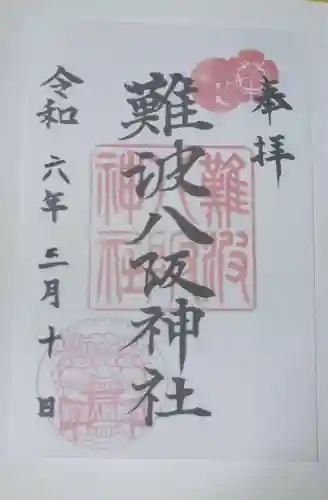 奉拝
難波八阪神社
令和六年三月十日
難波八阪神社